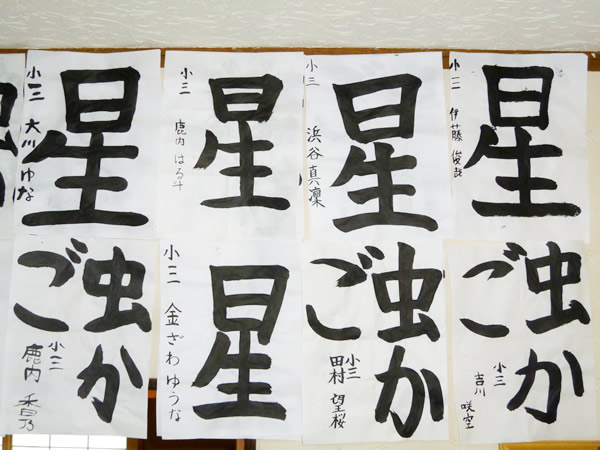 星
小三 伊藤 俊哉
星
小三 浜谷真凜
星
小三 鹿内はる斗
星
小三 大川ゆな
虫か
ご
小三 吉川 咲空
虫か
ご
小三 田村 望桜
星
小三 金ざわゆうな
虫か
ご
小三 鹿内 香乃